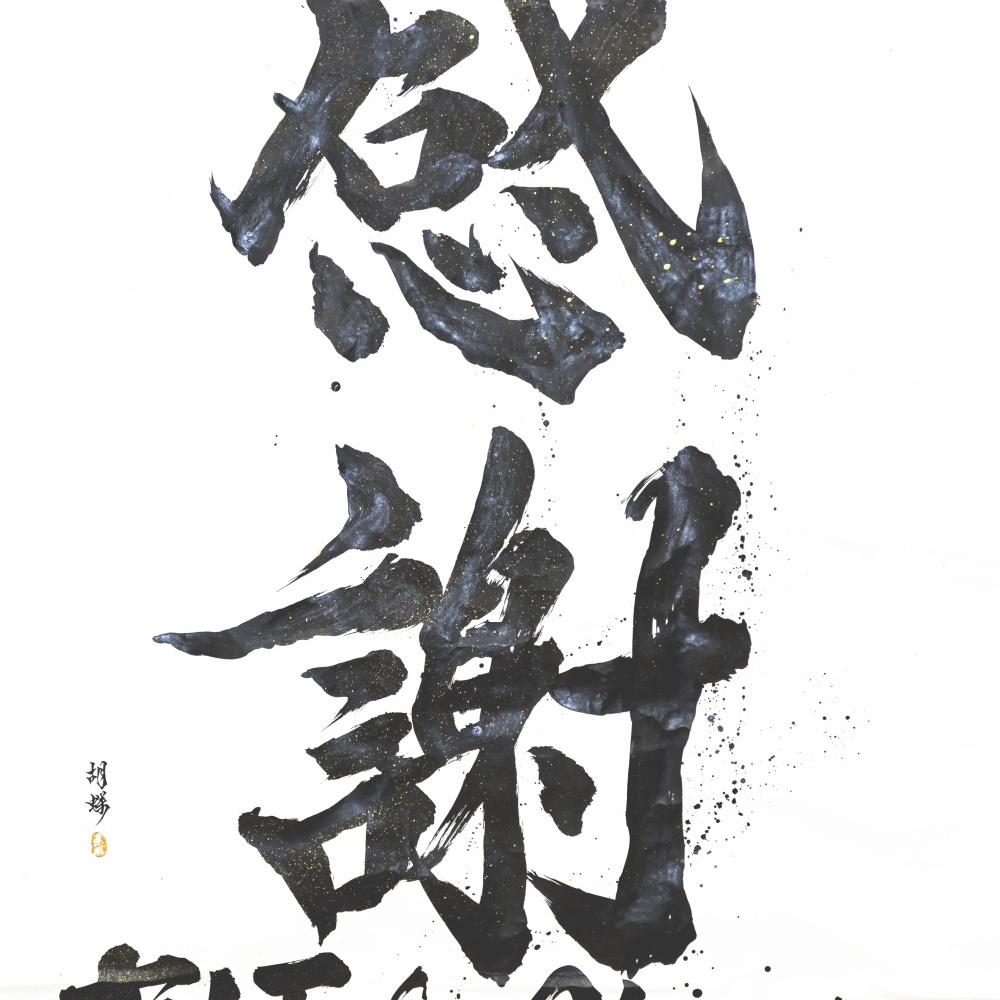 感
謝
胡蝶